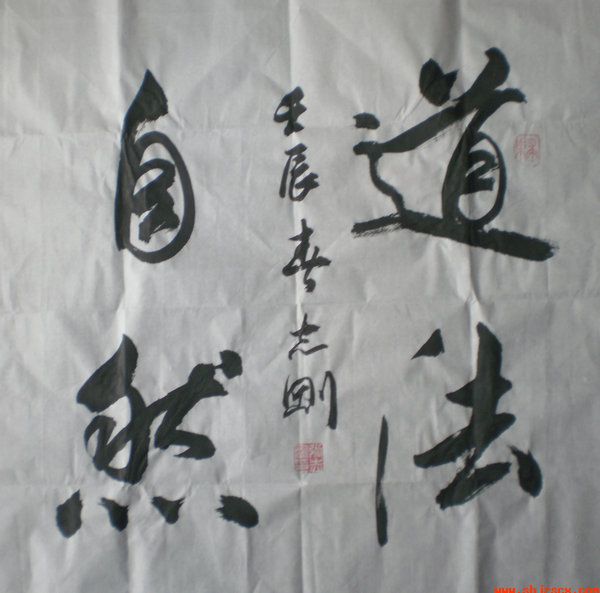 道法
自然
壬辰春志刚
www.shjsacx.com